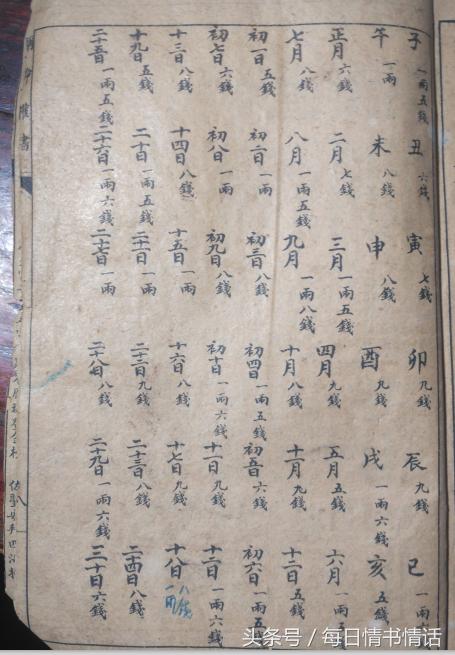 子 一兩五錢 丑 六錢 寅 七錢 卯 九錢 辰 九錢 巳 一兩
午 一兩 未 八錢 申 八錢 酉 九錢 戌 一兩六錢 亥 五錢
正月 六錢 二月 七錢 三月 一兩五錢 四月 九錢 五月 五錢 六月 一兩五
七月 八錢 八月 一兩五錢 九月 一兩八錢 十月 八錢 十一月 九錢 十二月 五錢
初一日 五錢 初二日 一兩 初三日 八錢 初四日 一兩五錢 初五日 六錢 初六日 一兩五錢
初七日 六錢 初八日 一兩 初九日 八錢 初十日 一兩六錢 十一日 九錢 十二日 一兩六錢
十三日 八錢 十四日 八錢 十五日 一兩 十六日 八錢 十七日 九錢 十八日 一兩八錢
十九日 五錢 二十日 一兩五錢 二十一日 一兩 二十二日 九錢 二十三日 八錢 二十四日 八錢
二十五日 一兩五錢 二十六日 一兩六錢 二十七日 一兩 二十八日 八錢 二十九日 一兩六錢 三十日 六錢
头条号 / 每日情书情话